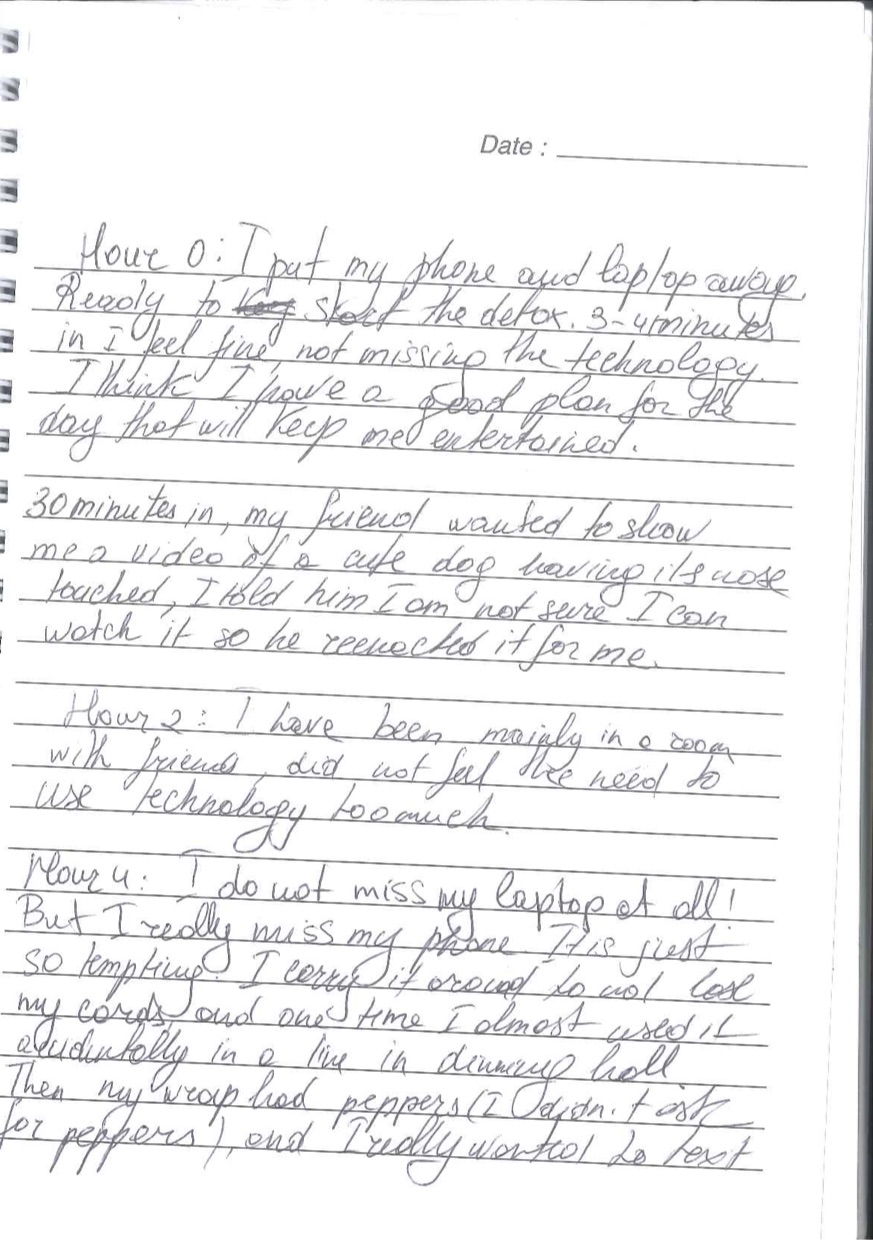 Date :
Hour 0: I put my phone and laptop away.
Ready to start the detox. 3-4 minutes
in I feel fine, not missing the technology.
I think I have a good plan for the
day that will keep me entertained.
30 minutes in, my friend wanted to show
me a video of a cute dog having its nose
touched, I told him I am not sure I can
watch it so he reenacted it for me.
Hour 2: I have been mainly in a room
with friends, did not feel the need to
use technology too much.
Hour 4: I do not miss my laptop at all!
But I really miss my phone. It is just
so tempting. I carry it around to not lose
my cards and one time I almost used it
accidentally in a line in dinning hall
Then my wrap had peppers (I didn't ask
for peppers), and I really wanted to text